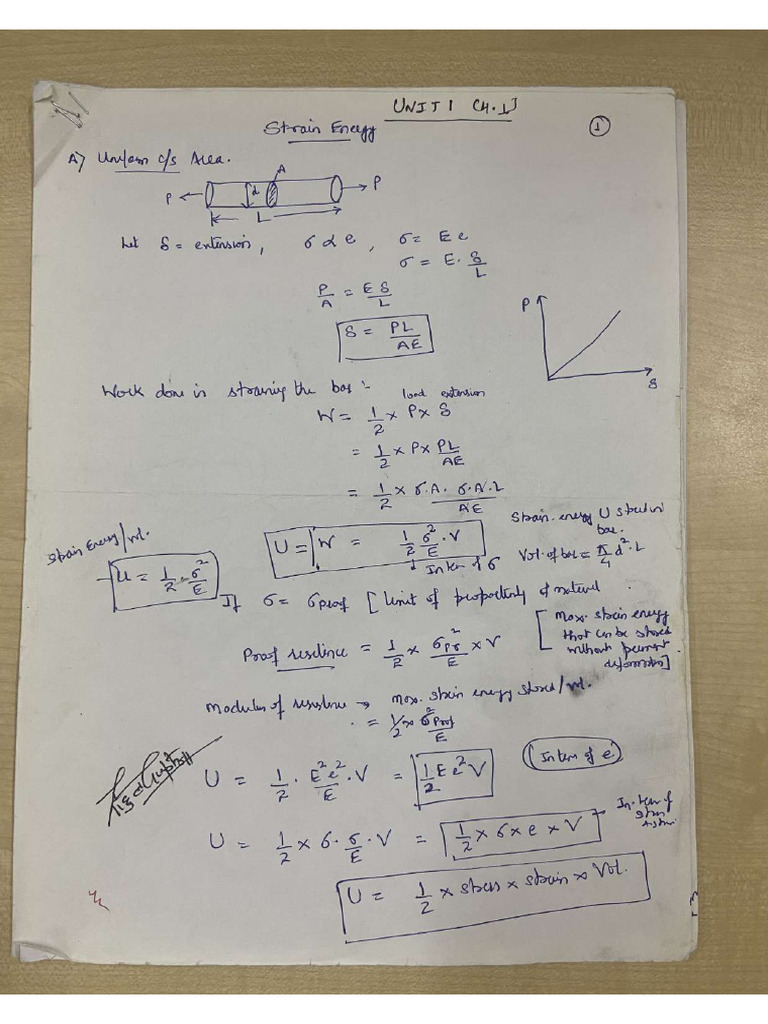 UNIT 1 CH. 1]
Strain Energy
1
A) Uniform c/s Area.
A
P
d
P
L
Let δ = extension, σ α e, σ = E e
σ = E. δ/L
P/A = E δ/L
δ = PL/AE
P
δ
Work done in straining the bar :-
load extension
W = 1/2 × P × δ
= 1/2 × P × PL/AE
= 1/2 × σ.A. σ.A.L/AE
Strain Energy/vol.
U = W = 1/2 σ²/E . V
Strain energy U stored in bar.
Vol. of bar = π/4 d². L
In term of σ
u = 1/2 . σ²/E
If σ = σproof [ limit of proportionality of material.
Proof resilience = 1/2 × σpr²/E × V
[ Max. strain energy
that can be stored
without permanent
deformation]
Modulus of resilience → Max. strain energy stored/vol.
= 1/2 × σ²proof/E
U = 1/2 . E²e²/E . V = 1/2 E e² V
(In term of e)
U = 1/2 × σ. σ/E . V = 1/2 × σ × e × V
In term of
stress
U = 1/2 × stress × strain × Vol.